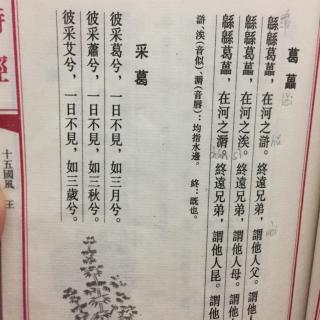 葛藟
緜緜葛藟，在河之滸。終遠兄弟，謂他人父。謂他
緜緜葛藟，在河之涘。終遠兄弟，謂他人母。謂他
緜緜葛藟，在河之漘。終遠兄弟，謂他人昆。謂他
滸、涘（音似）、漘（音唇）：均指水邊。 終：既也。
采葛
彼采葛兮，一日不見，如三月兮。
彼采蕭兮，一日不見，如三秋兮。
彼采艾兮，一日不見，如三歲兮。
經
十五國風 王